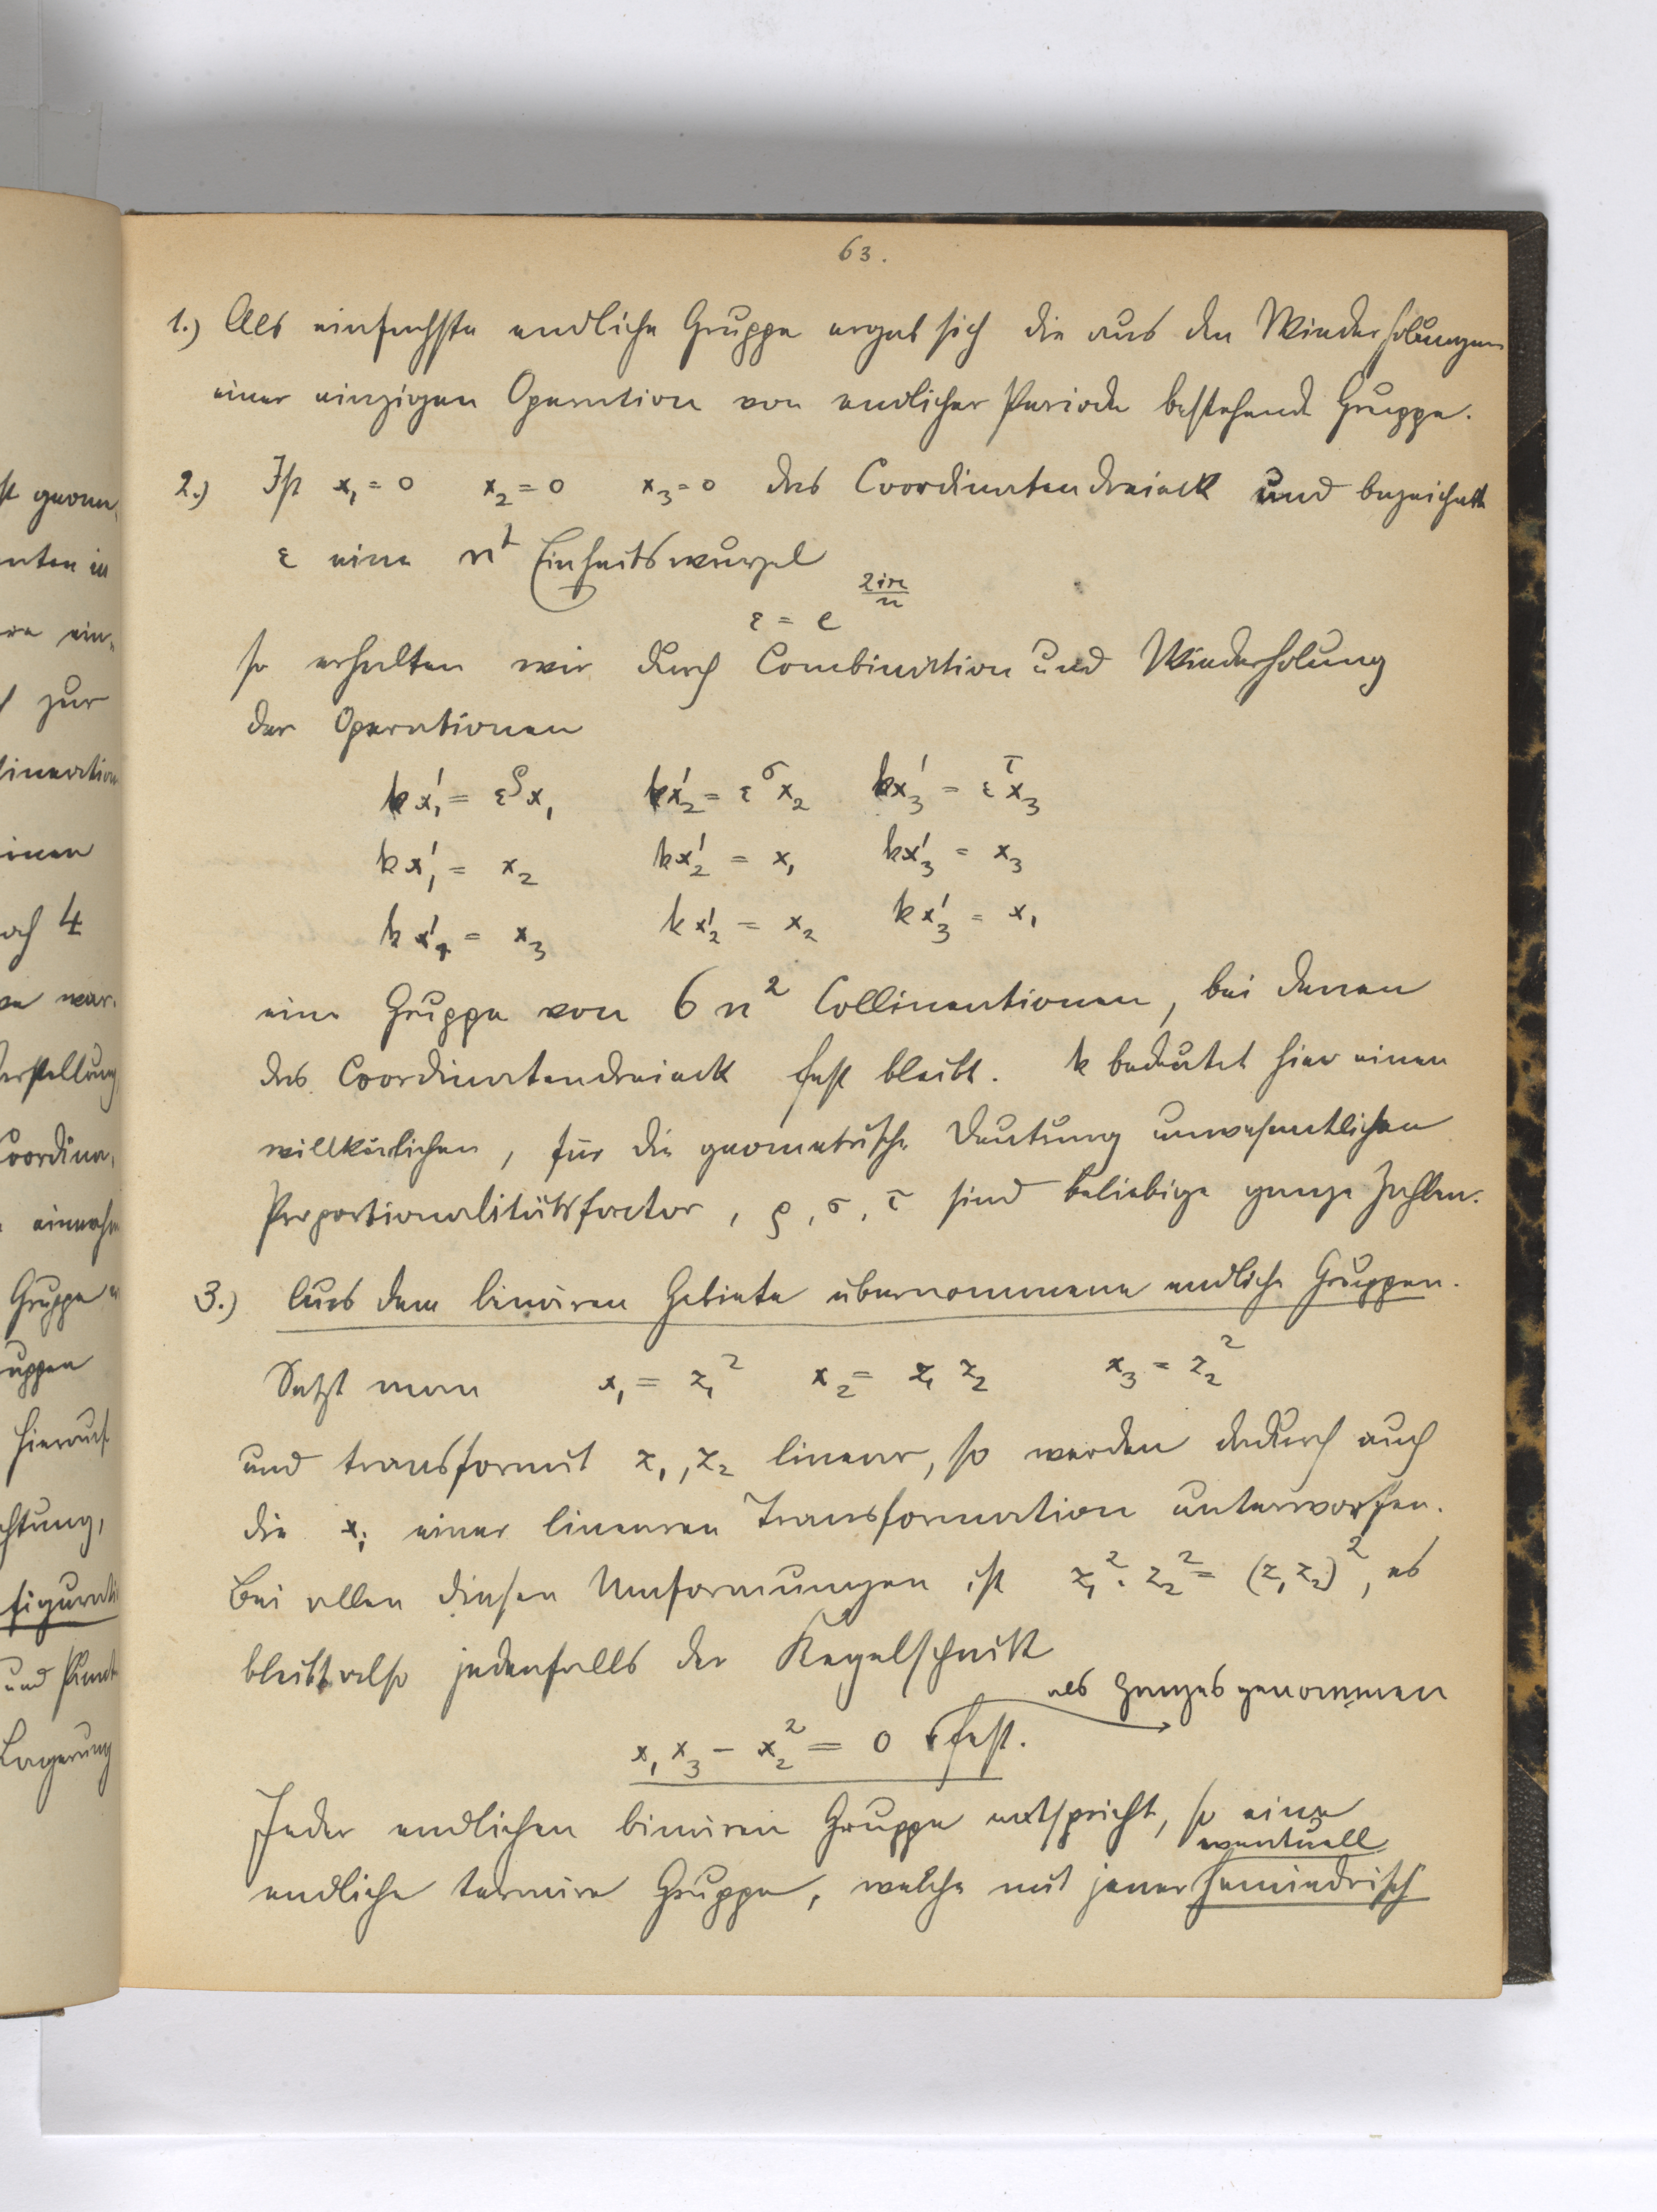 63.
1.) Als einfachste endliche Gruppe ergab sich die aus den Wiederholungen
einer einzigen Operation von endlicher Periode bestehende Gruppe.
2.) Ist x₁ = 0 x₂ = 0 x₃ = 0 das Coordinatendreieck und bezeichnet
ε eine nᵗ Einheitswurzel
ε = e^{2iπ/n}
so erhalten wir durch Combination und Wiederholung
der Operationen
kx₁' = ε^ρ x₁ kx₂' = ε^σ x₂ kx₃' = ε^τ x₃
kx₁' = x₂ kx₂' = x₁ kx₃' = x₃
kx₁' = x₃ kx₂' = x₂ kx₃' = x₁
eine Gruppe von 6n² Collineationen, bei denen
das Coordinatendreieck fest bleibt. k bedeutet hier einen
willkürlichen, für die geometrische Deutung unwesentlichen
Proportionalitätsfactor, ρ, σ, τ sind beliebige ganze Zahlen.
3.) Aus dem binären Gebiete übernommene endliche Gruppen.
Setzt man x₁ = z₁² x₂ = z₁ z₂ x₃ = z₂²
und transformirt z₁, z₂ linear, so werden dadurch auch
die xᵢ einer linearen Transformation unterworfen.
Bei allen diesen Umformungen ist z₁² . z₂² = (z₁ z₂)², es
bleibt also jedenfalls der Kegelschnitt
als Ganzes genommen
x₁ x₃ − x₂² = 0 fest.
Jeder endlichen binären Gruppe entspricht, so eine
eventuell
endliche ternäre Gruppe, welche mit jener hemiedrisch